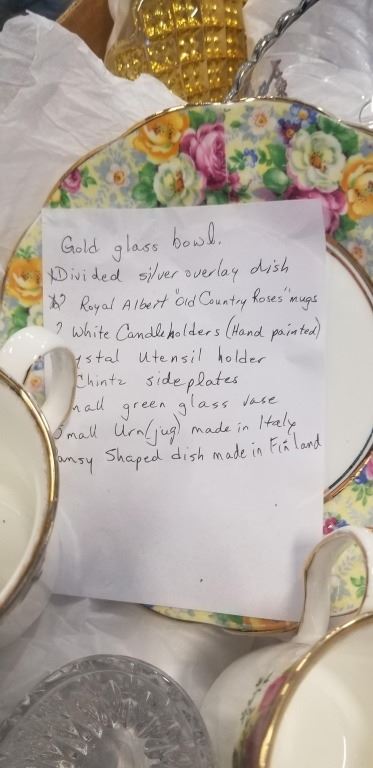 Gold glass bowl.
Divided silver overlay dish
2 Royal Albert "Old Country Roses" mugs
2 White Candleholders (Hand painted)
ystal Utensil holder
Chintz sideplates
mall green glass vase
Small Urn (jug) made in Italy
ansy Shaped dish made in Finland